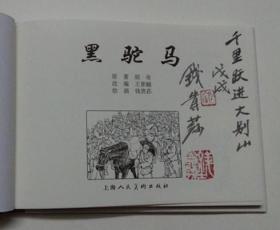 黑驼马
原著 颐奇
改编 王里鲷
绘画 钱贵荪
上海人民美术出版社
千里跃进大别山
戊戌
钱贵荪